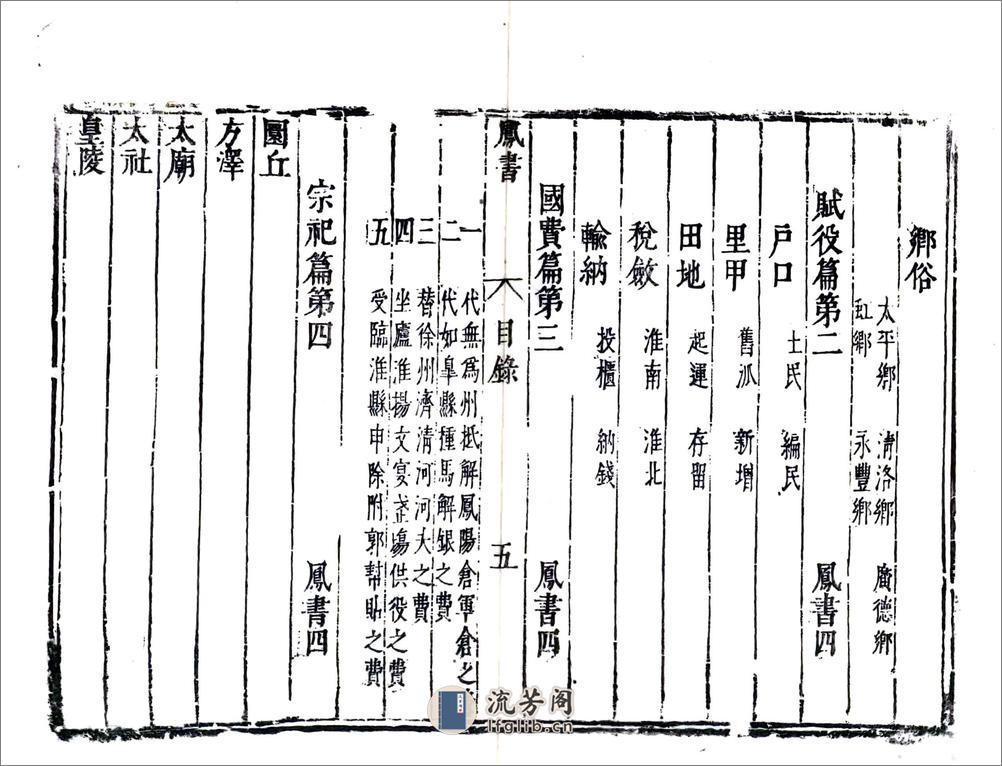 鄉俗
太平鄉 清洛鄉 廣德鄉
虹鄉 永豐鄉
賦役篇第二 鳳書四
戶口 土民 編民
里甲 舊派 新增
田地 起運 存留
稅斂 淮南 淮北
輸納 投櫃 納錢
國費篇第三 鳳書四
鳳書 目錄 五
一 代無爲州抵解鳳陽倉軍倉之
二 代如臯縣種馬解銀之費
三 替徐州濟清河河夫之費
四 坐廬淮揚文宴盞塲供役之費
五 受臨淮縣申除附郭幫貼之費
宗祀篇第四 鳳書四
圜丘
方澤
太廟
太社
皇陵
流芳阁
lfglib.cn